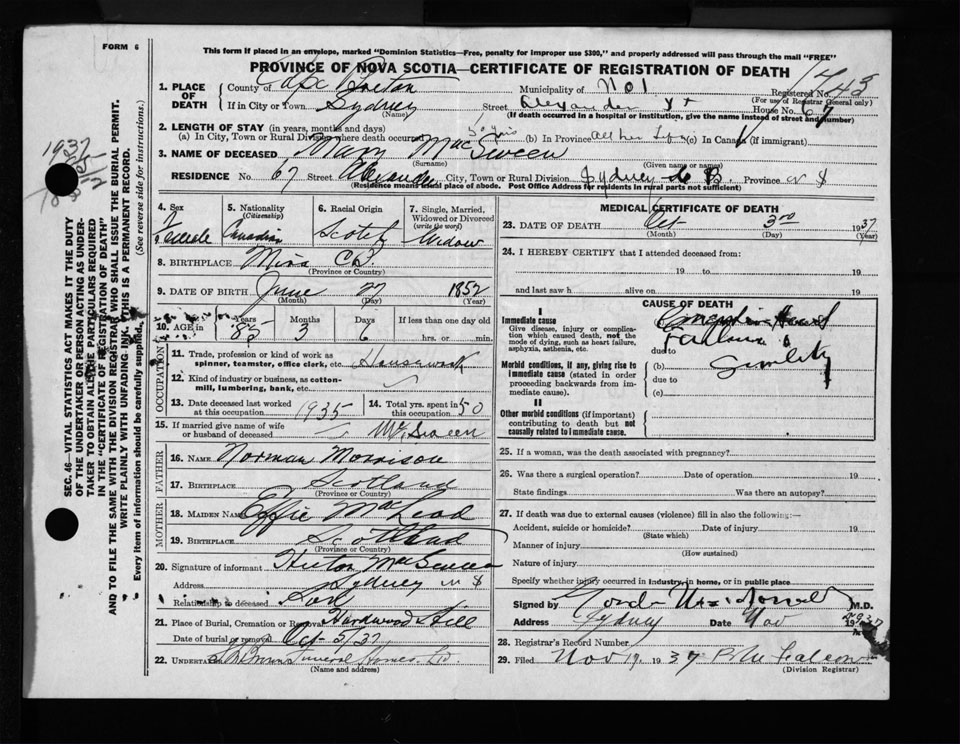 FORM 6
This form if placed in an envelope, marked "Dominion Statistics—Free, penalty for improper use $300," and properly addressed will pass through the mail "FREE"
PROVINCE OF NOVA SCOTIA—CERTIFICATE OF REGISTRATION OF DEATH
1743
1. PLACE OF DEATH
County of Cape Breton Municipality of No 1 Registered No.
(For use of Registrar General only)
If in City or Town Sydney Street Alexander St House No. 67
(Name) (If death occurred in a hospital or institution, give the name instead of street and number)
2. LENGTH OF STAY (in years, months and days)
(a) In City, Town or Rural Division where death occurred 50 yrs (b) In Province All her Life (c) In Canada (if immigrant)
3. NAME OF DECEASED Mary MacSween
(Surname) (Given name or names)
RESIDENCE No. 67 Street Alexander City, Town or Rural Division Sydney C B. Province N S
(Residence means usual place of abode. Post Office Address for residents in rural parts not sufficient)
4. Sex Female
5. Nationality (Citizenship) Canadian
6. Racial Origin Scotch
7. Single, Married, Widowed or Divorced (write the word) Widow
8. BIRTHPLACE Mira CB
(Province or Country)
9. DATE OF BIRTH June 27 1852
(Month) (Day) (Year)
10. AGE in Years 85 Months 3 Days 6 If less than one day old
hrs. or min.
OCCUPATION
11. Trade, profession or kind of work as spinner, teamster, office clerk, etc. Housework
12. Kind of industry or business, as cotton-mill, lumbering, bank, etc.
13. Date deceased last worked at this occupation 1935
14. Total yrs. spent in this occupation 50
15. If married give name of wife or husband of deceased McSween
FATHER
16. NAME Norman Morrison
17. BIRTHPLACE Scotland
(Province or Country)
MOTHER
18. MAIDEN NAME Effie McLeod
19. BIRTHPLACE Scotland
(Province or Country)
20. Signature of informant MacSween
Address Sydney N S
Relationship to deceased Son
21. Place of Burial, Cremation or Removal Hardwood Hill
Date of burial or removal Oct 5/37
22. UNDERTAKER Funeral Homes Ltd.
(Name and address)
MEDICAL CERTIFICATE OF DEATH
23. DATE OF DEATH Oct 3rd 1937
(Month) (Day) (Year)
24. I HEREBY CERTIFY that I attended deceased from:
19 to 19
and last saw h alive on 19
CAUSE OF DEATH
I
Immediate cause
Give disease, injury or complication which caused death, not the mode of dying, such as heart failure, asphyxia, asthenia, etc.
Congestive Heart Failure
due to
Morbid conditions, if any, giving rise to immediate cause (stated in order proceeding backwards from immediate cause).
(b) Senility
due to
(c)
II
Other morbid conditions (if important) contributing to death but not causally related to immediate cause.
25. If a woman, was the death associated with pregnancy?
26. Was there a surgical operation? Date of operation 19
State findings Was there an autopsy?
27. If death was due to external causes (violence) fill in also the following:—
Accident, suicide or homicide? Date of injury 19
(State which)
Manner of injury
(How sustained)
Nature of injury
Specify whether injury occurred in industry, in home, or in public place
Signed by M.D.
Address Sydney Date Nov 1937
28. Registrar's Record Number
29. Filed Nov 19. 1937
(Division Registrar)
SEC. 46—VITAL STATISTICS ACT MAKES IT THE DUTY
OF THE UNDERTAKER OR PERSON ACTING AS UNDER-
TAKER TO OBTAIN ALL THE PARTICULARS REQUIRED
IN THE "CERTIFICATE OF REGISTRATION OF DEATH"
AND TO FILE THE SAME WITH THE DIVISION REGISTRAR WHO SHALL ISSUE THE BURIAL PERMIT.
WRITE PLAINLY WITH UNFADING INK. THIS IS A PERMANENT RECORD.
Every item of information should be carefully supplied. (See reverse side for instructions.)
1937